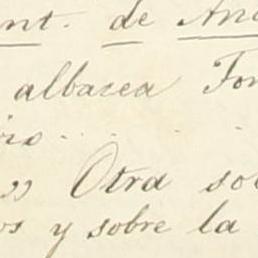 nt. de An
albacea Fon
rio . . . .
" Otra so
os y sobre la